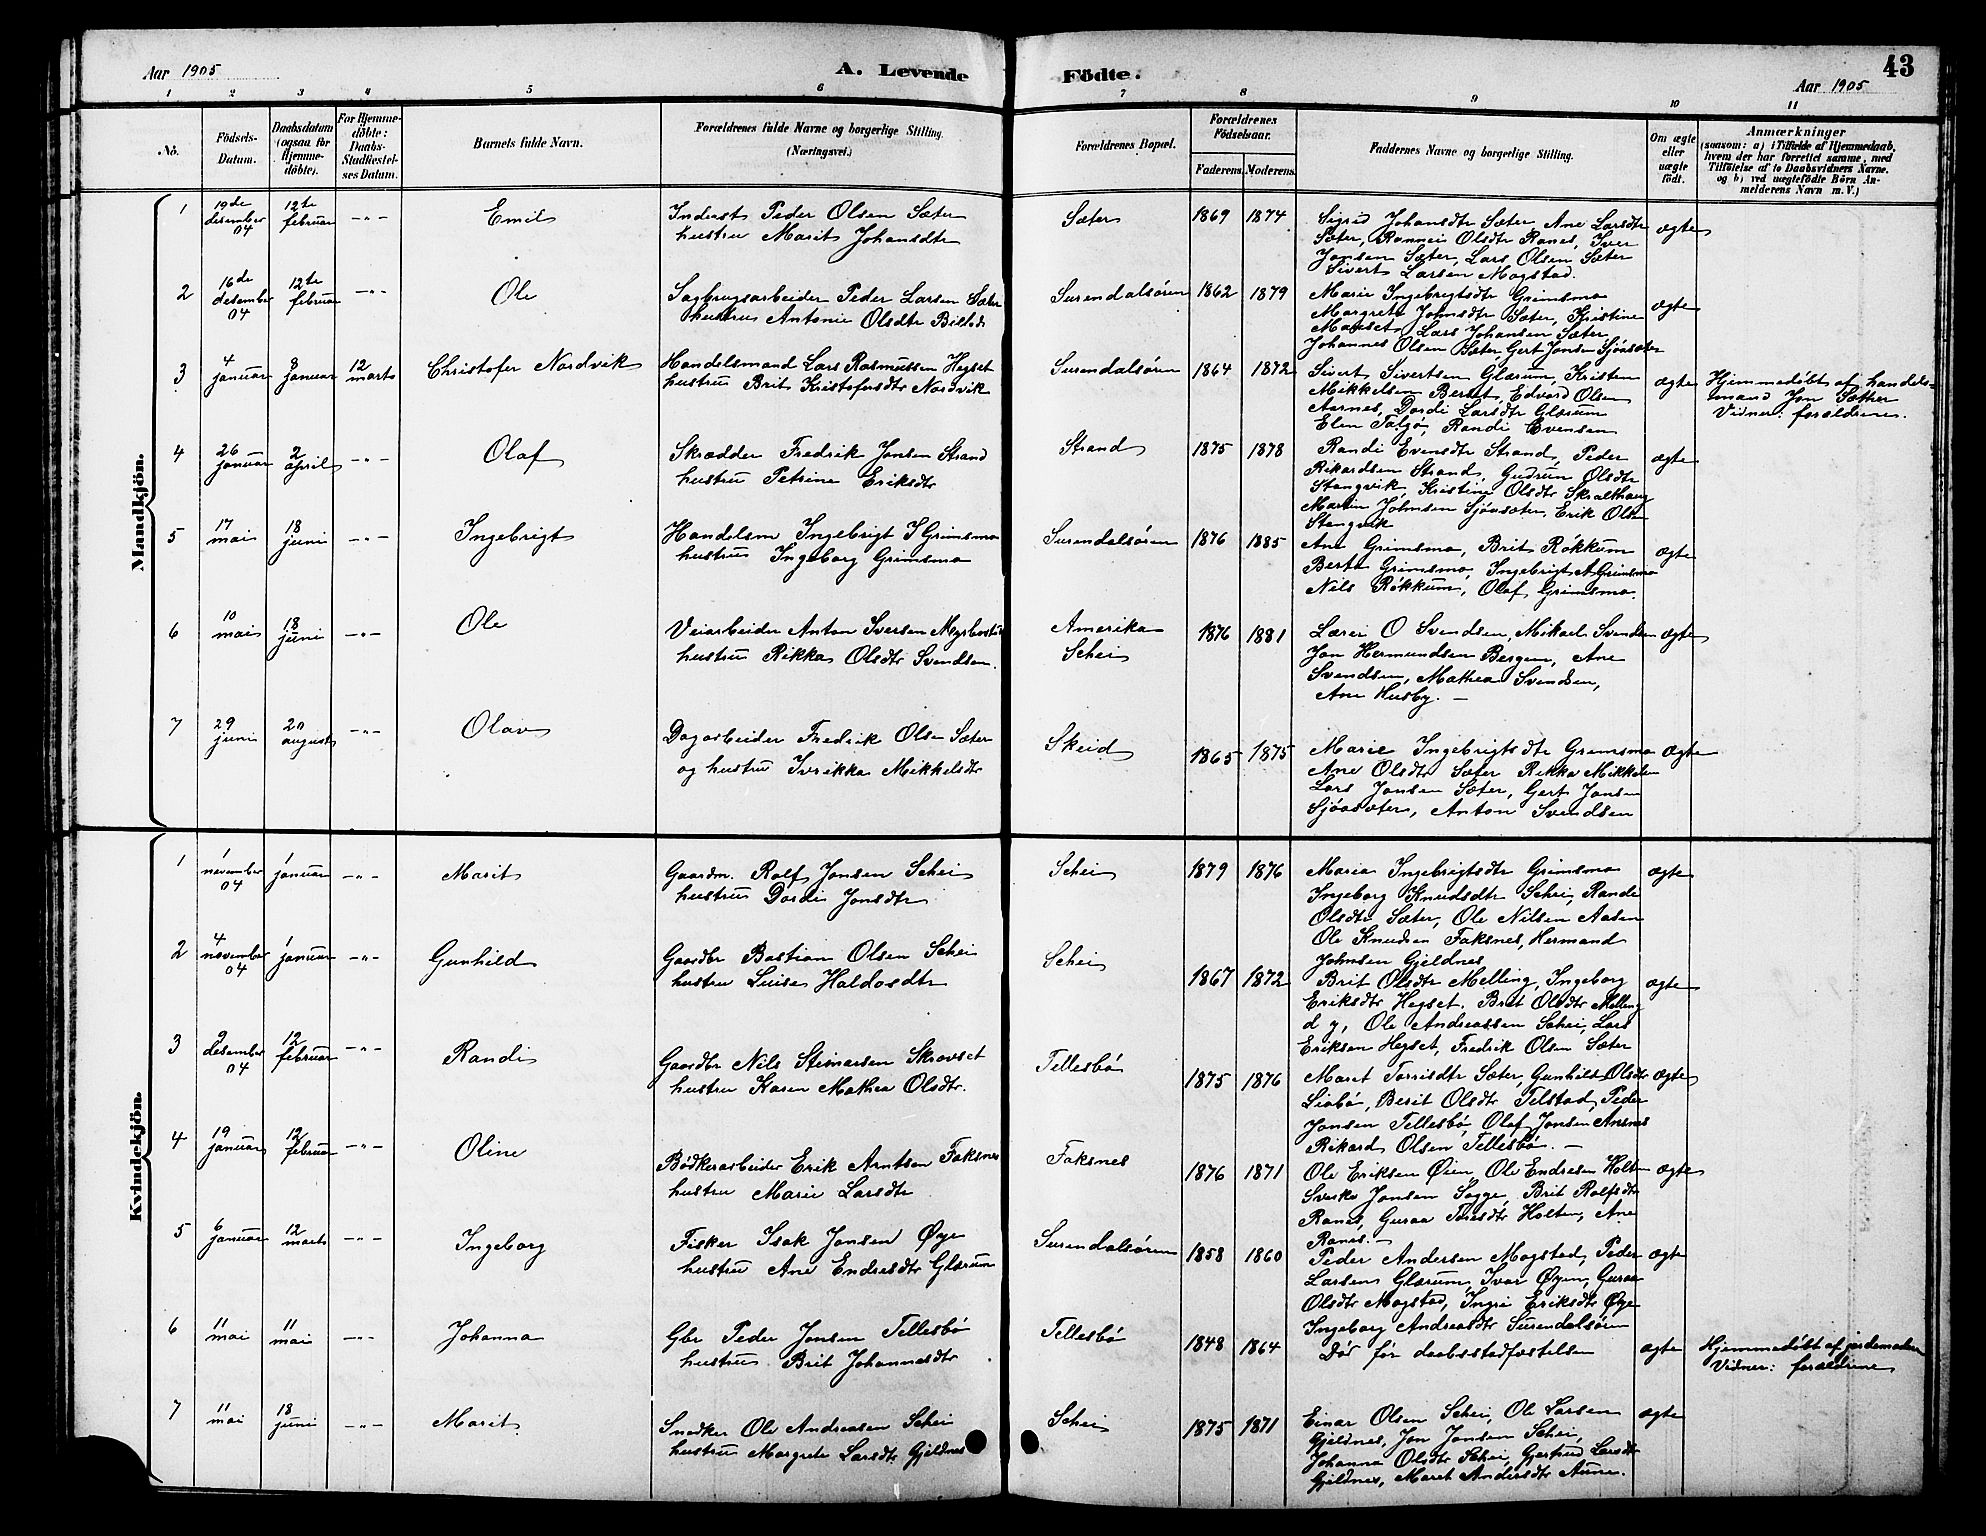 Aar 1905
A. Levende
Födte.
43
Aar 1905
1 2 3 4 5 6 7 8 9 10 11
No.
Födsels-
Datum.
Daabsdatum
(ogsaa for
Hjemme-
döbte).
For Hjemme-
döbte:
Daabs-
Stadfæstel-
ses Datum.
Barnets fulde Navn.
Forældrenes fulde Navne og borgerlige Stilling.
(Næringsvei.)
Forældrenes Bopæl.
Forældrenes
Födselsaar.
Faderens. Moderens.
Faddernes Navne og borgerlige Stilling.
Om ægte
eller
uægte
födt.
Anmærkninger
(saasom: a) i Tilfælde af Hjemmedaab,
hvem der har forrettet samme, med
Tilföielse af to Daabsvidners Navne,
og b) ved uægtefödte Börn An-
melderens Navn m. V.)
Mandkjön.
1 19de desember 04 12te februar -"- Emil
Inderst Peder Olsen Sæter
hustru Marit Johansdtr
Sæter 1869 1874
Sigrid Johansdtr Sæter Ane Larsdtr
Sæter, Rannei Olsdtr Ranes, Iver
Jonsen Sæter, Lars Olsen Sæter
Sivert Larsen Mogstad.
ægte
2 16de desember 04 12te februar -"- Ole
Sagbrugsarbeider Peder Larsen Sæter
hustru Antonie Olsdtr
Surendalsøren 1862 1879
Marie Ingebrigtsdtr Grimsmo
Margrete Johnsdtr Sæter, Kristine
Mauset, Lars Johansen Sæter,
Johannes Olsen Sæter, Gert Jonsen Sjøsæter
ægte
3 4 januar 8 januar 12 marts Christofer Nordvik
Handelsmand Lars Rasmussen Hegset
hustru Brit Kristofersdtr Nordvik
Surendalsøren 1864 1872
Sivert Sivertsen Glærum, Kristen
Mikkelsen Berset, Edvard Olsen
Aarnes, Dordi Larsdtr Glærum
Elen Talgø, Randi Evensen
ægte
Hjemmedøbt af handels-
mand Jon Sæther
Vidner: forældrene.
4 26 januar 2 april -"- Olaf
Skrædder Fredrik Jonsen Strand
hustru Petrine Eriksdtr
Strand 1875 1878
Randi Evensdtr Strand, Peder
Rikardsen Strand, Gudrun Olsdtr
Stangvik, Kristine Olsdtr Skralthaug
Martin Johnsen Sjøsæter, Erik Olsen
Stangvik
ægte
5 17 mai 18 juni -"- Ingebrigt
Handelsm Ingebrigt I Grimsmo
hustru Ingeborg Grimsmo
Surendalsøren 1876 1885
Ane Grimsmo, Brit Røkkum
Berte Grimsmo, Ingebrigt A Grimsmo
Nils Røkkum, Olaf Grimsmo.
ægte
6 10 mai 18 juni -"- Ole
Veiarbeider Anton Iversen
hustru Rikka Olsdtr Svendsen.
Amerika
Schei
1876 1881
Lærer O Svendsen, Mikael Svendsen
Jon Hermundsen Bergem, Ane
Svendsen, Mathea Svendsen,
Ane Husby. -
ægte
7 29 juni 20 august -"- Olav
Dagarbeider Fredrik Olsen Sæter
og hustru Ivrikka Mikkelsdtr
Skeid 1865 1875
Marie Ingebrigtsdtr Grimsmo
Ane Olsdtr Sæter Rikka Mikkelsen
Lars Jonsen Sæter, Gert Jonsen
Sjøsæter, Anton Svendsen
ægte
Kvindekjön.
1 1 november 04 1 januar -"- Marit
Gaardm. Rolf Jonsen Schei
hustru Dordi Jonsdtr
Schei 1879 1876
Maria Ingebrigtsdtr Grimsmo
Ingeborg Knudsdtr Schei, Randi
Olsdtr Sæter, Ole Nilsen Aasen
Ole Knudsen Faksnes, Hermand
Johnsen Gjeldnes
ægte
2 4 november 04 1 januar -"- Gunhild
Gaardbr Bastian Olsen Schei
hustru Luise Haldosdtr
Schei 1867 1872
Brit Olsdtr Melling, Ingeborg
Eriksdtr Hegset. Brit Olsdtr Melling
d y, Ole Andreassen Schei, Lars
Eriksen Hegset, Fredrik Olsen Sæter
ægte
3 9 desember 04 12 februar -"- Randi
Gaardbr Nils Steinarsen Skrovset
hustru Karen Mathea Olsdtr.
Tellesbø 1875 1876
Maret Torrisdtr Sæter, Gunhild Olsdtr
Liabø, Berit Olsdtr Telstad, Peder
Jonsen Tellesbø, Olaf Jonsen Aasnes
Rikard Olsen Tellesbø. -
ægte
4 19 januar 12 februar -"- Oline
Bødkerarbeider Erik Arntsen Faksnes
hustru Marie Larsdtr
Faksnes 1876 1871
Ole Eriksen Øien, Ole Endresen Holten
Sverke Jonsen Sogge, Brit Rolfsdtr
Ranes, Guraa Toresdtr Holten, Ane
Ranes. -
ægte
5 6 januar 12 marts -"- Ingeborg
Fisker Isak Jonsen Øye
hustru Ane Endresdtr Glærum
Surendalsøren 1858 1860
Peder Andersen Mogstad, Peder
Larsen Glærum, Ivar Øyen, Guraa
Olsdtr Mogstad, Ingri Eriksdtr Øye
Ingeborg Andreasdtr Surendalsøren
ægte
6 11 mai 11 mai -"- Johanna
Gbr Peder Jonsen Tellesbø
hustru Brit Johannesdtr
Tellesbø 1848 1864
Død før daabsstadfæstelsen
ægte
Hjemmedøbt af jordemoderen
Vidner: forældrene
7 11 mai 18 juni -"- Marit
Snedker Ole Andreasen Schei
hustru Margrete Larsdtr Gjeldnes
Schei 1875 1871
Einar Olsen Schei, Ole Larsen
Gjeldnes, Jon Jonsen Schei,
Johanna Olsdtr Schei, Gjertrud Larsdtr
Gjeldnes, Maret Andersdtr Aune.
ægte